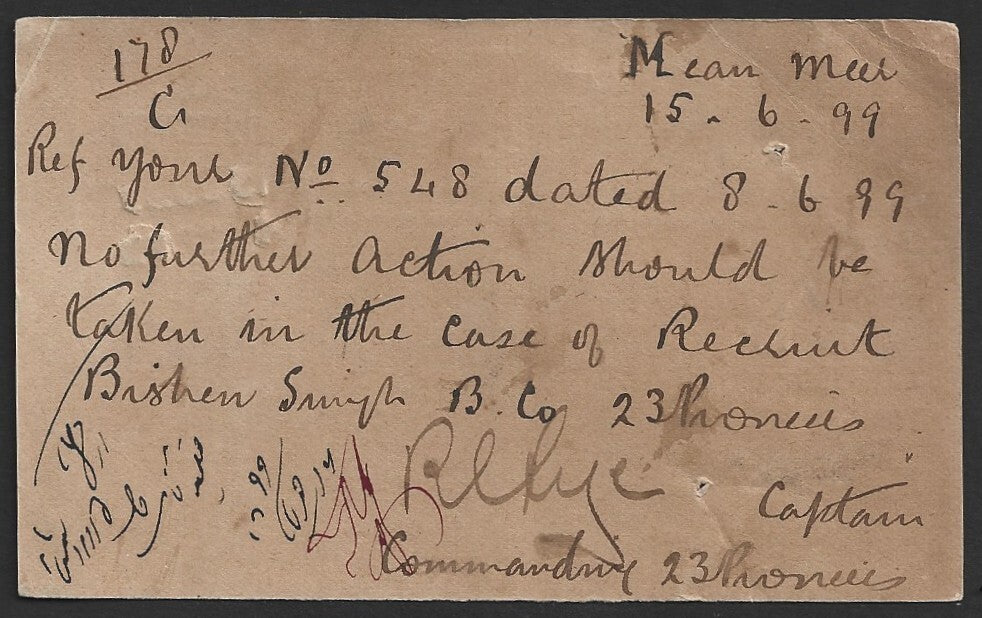 178
Mean Meer
15. 6. 99
Ref Yours No 548 dated 8. 6 99
No further action should be
taken in the case of Recruit
Bishen Singh B. Co 23 Pioneers
Captain
Commanding 23 Pioneers